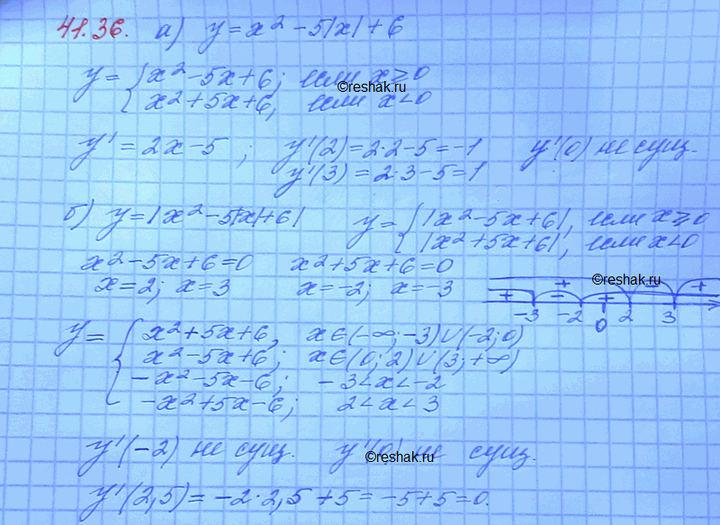 41.36. а) y = x² - 5|x| + 6
y = { x² - 5x + 6; если x ≥ 0
x² + 5x + 6, если x < 0
©reshak.ru
y' = 2x - 5 ; y'(2) = 2·2 - 5 = -1 y'(0) не сущ.
y'(3) = 2·3 - 5 = 1
б) y = |x² - 5|x| + 6| y = { |x² - 5x + 6|, если x ≥ 0
|x² + 5x + 6|, если x < 0
x² - 5x + 6 = 0 x² + 5x + 6 = 0
x = 2; x = 3 x = -2; x = -3
©reshak.ru
+ -
+ - + +
-3 -2 0 2 3
y = { x² + 5x + 6, x ∈ (-∞; -3) ∪ (-2; 0)
x² - 5x + 6; x ∈ (0; 2) ∪ (3; +∞)
-x² - 5x - 6; -3 < x < -2
-x² + 5x - 6; 2 < x < 3
y'(-2) не сущ. y'(0) не сущ.
©reshak.ru
y'(2,5) = -2·2,5 + 5 = -5 + 5 = 0.